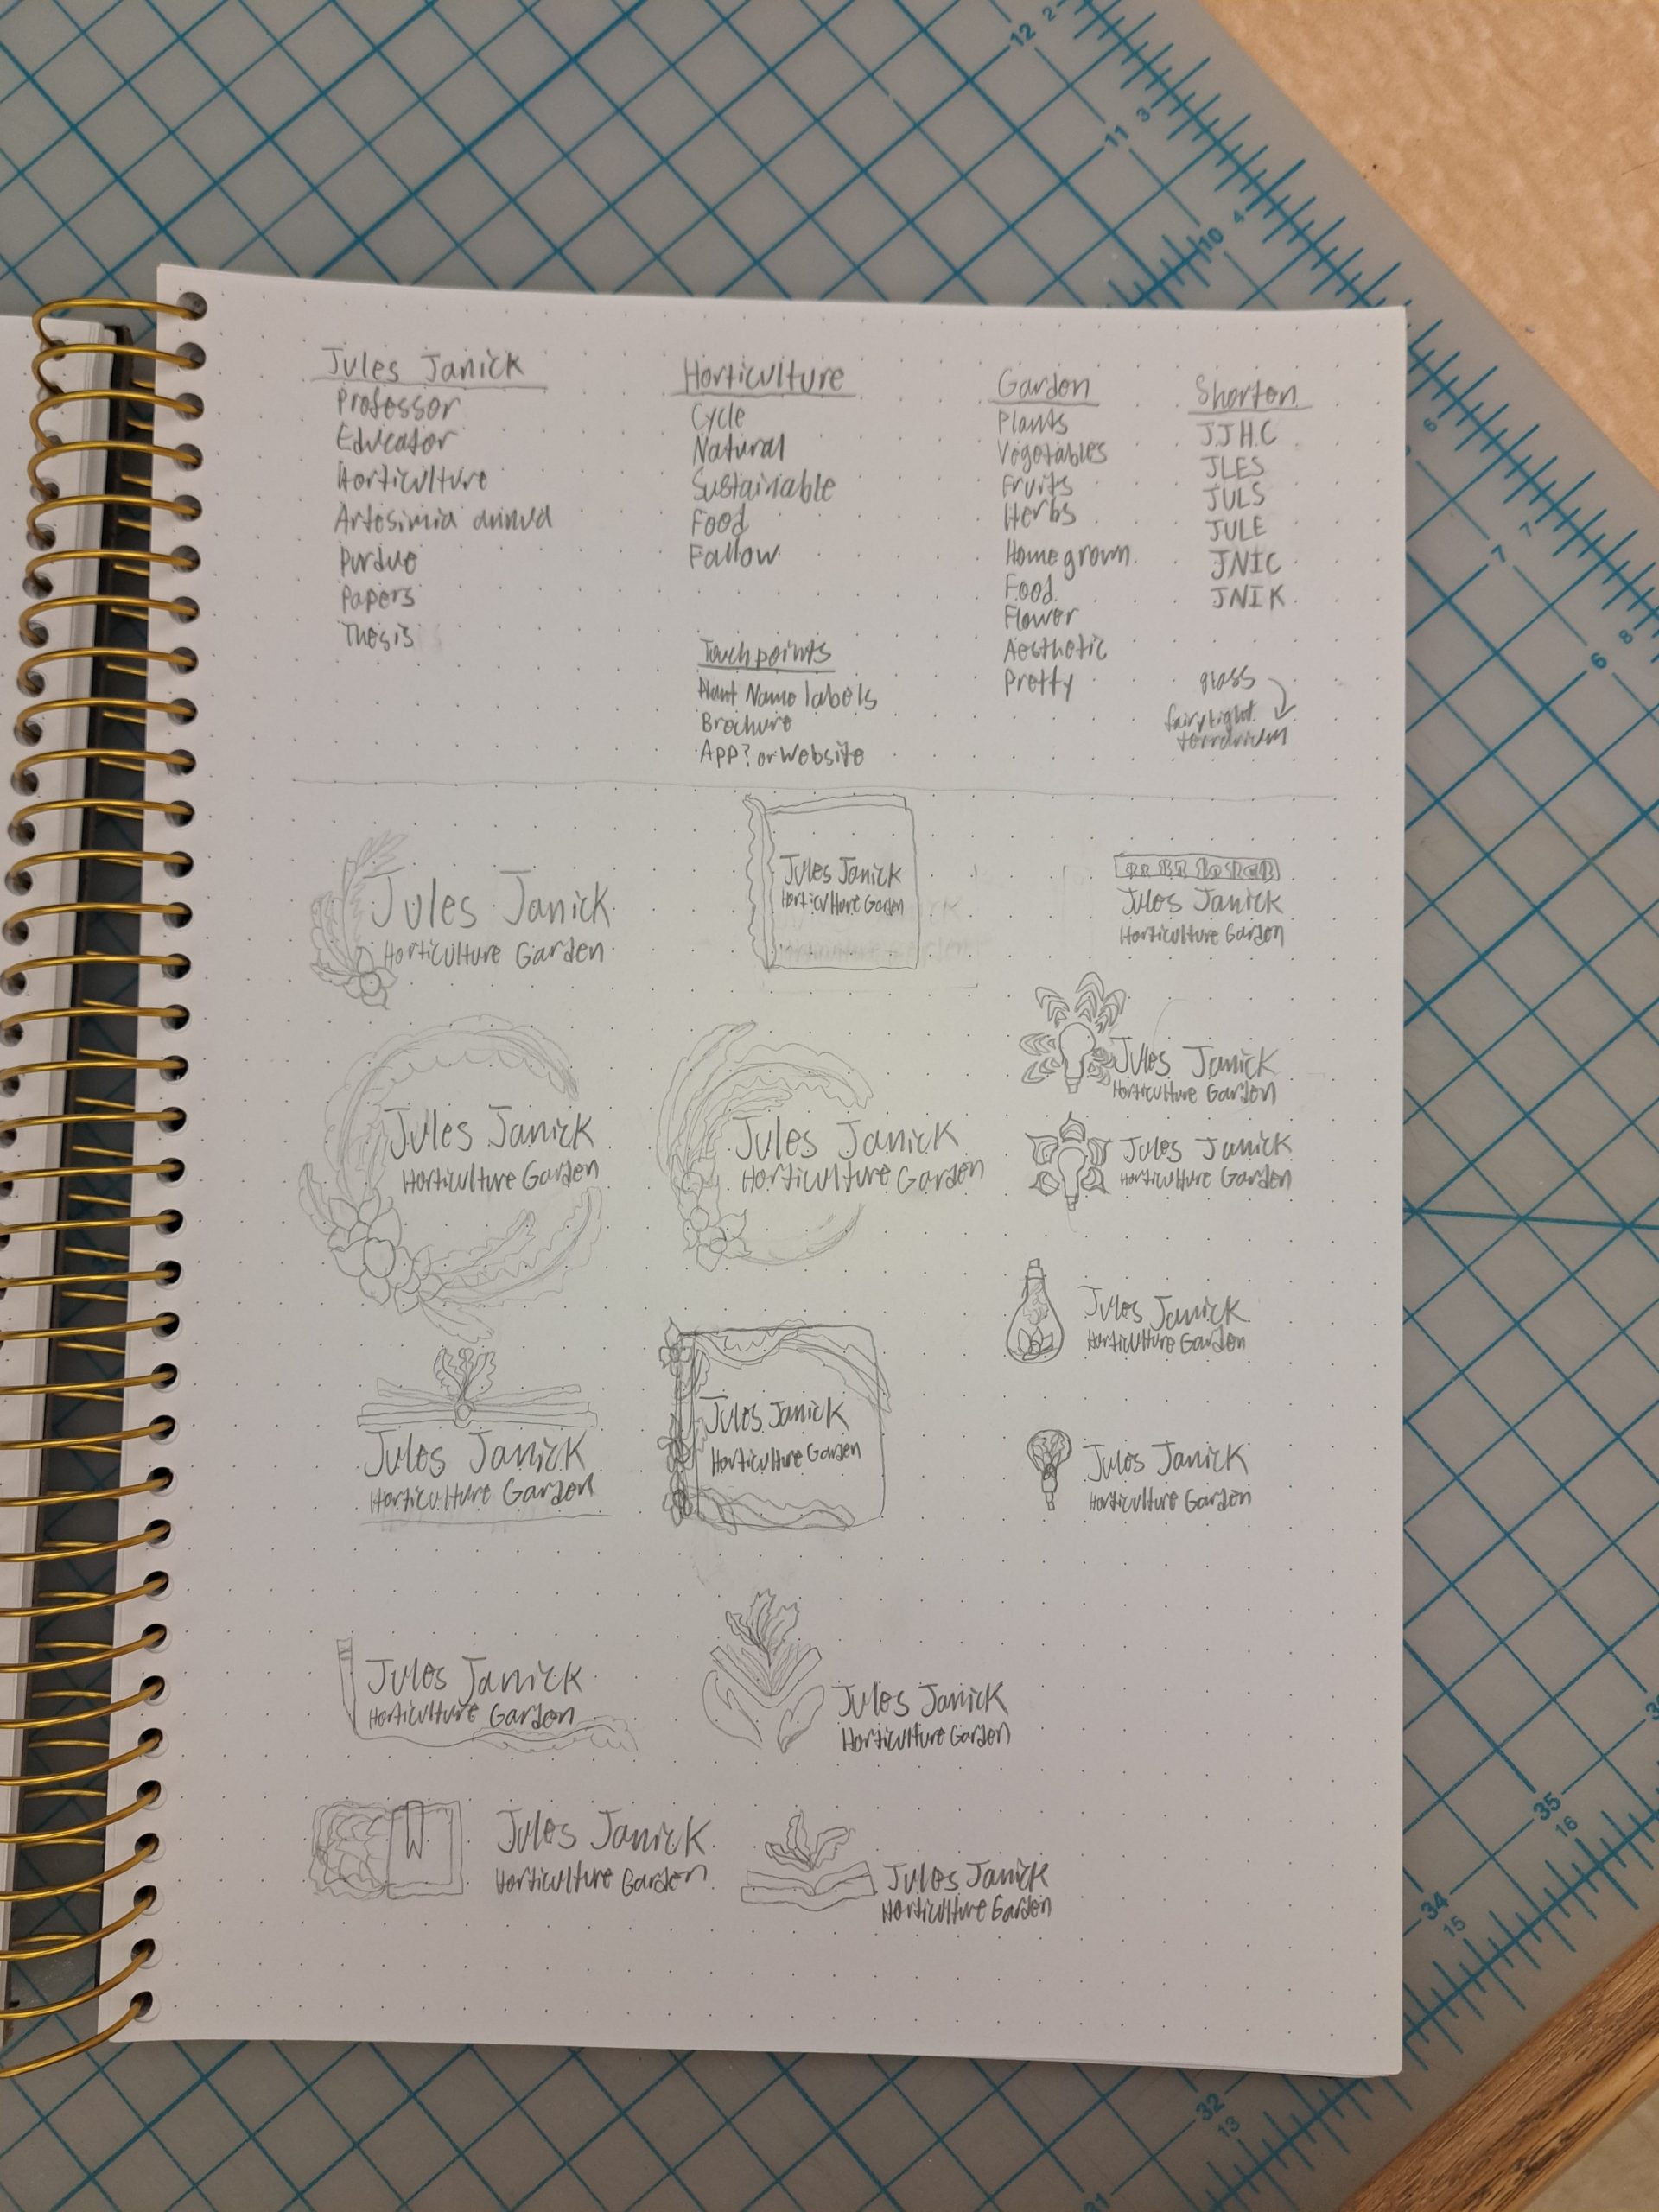 Jules Janick
Professor
Educator
Horticulture
Artesimia annua
Purdue
Papers
Thesis
Horticulture
Cycle
Natural
Sustainable
Food
Fallow
Touchpoints
Plant Name labels
Brochure
App? or Website
Garden
Plants
Vegetables
Fruits
Herbs
Homegrown
Food
Flower
Aesthetic
Pretty
Shorten
JJHC
JLES
JULS
JULE
JNIC
JNIK
glass
fairylight
terrarium
Jules Janick
Horticulture Garden
Jules Janick
Horticulture Garden
Jules Janick
Horticulture Garden
Jules Janick
Horticulture Garden
Jules Janick
Horticulture Garden
Jules Janick
Horticulture Garden
Jules Janick
Horticulture Garden
Jules Janick
Horticulture Garden
Jules Janick
Horticulture Garden
Jules Janick
Horticulture Garden
Jules Janick
Horticulture Garden
Jules Janick
Horticulture Garden
Jules Janick
Horticulture Garden
Jules Janick
Horticulture Garden
Jules Janick
Horticulture Garden
12
2
11
3
10
4
6
7
7
6
8
35
16
34
15
32
13
31